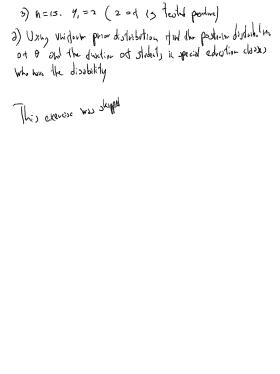 3) n=15. y₁=2 (2 of 15 tested positive)
a) Using uniform prior distribution find the posterior distribution
of θ and the fraction of students in special education classes
who have the disability
This exercise was skipped